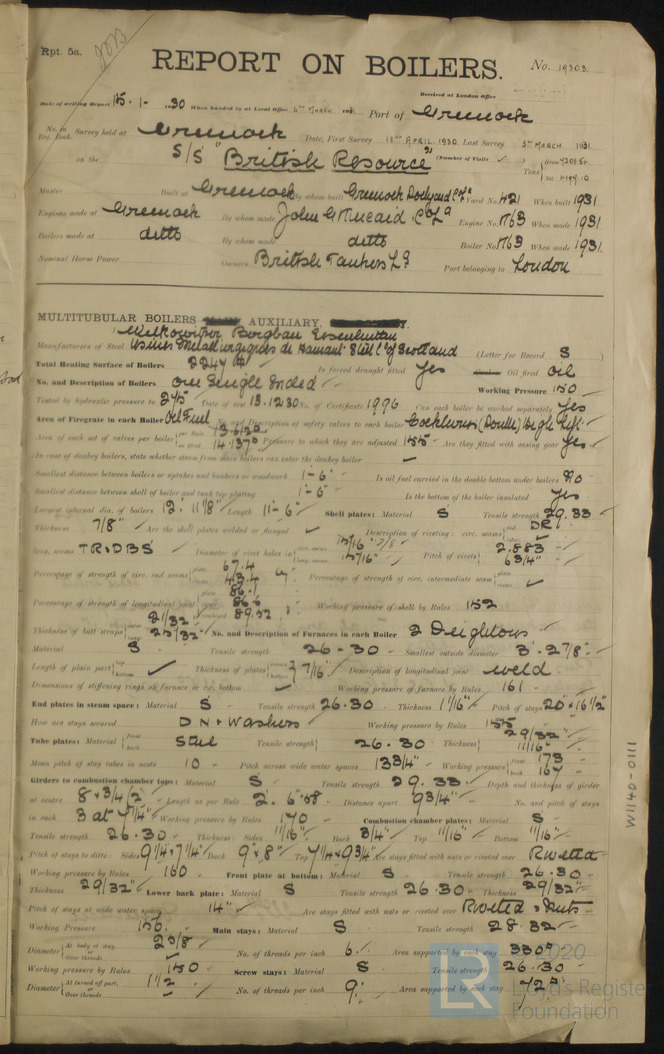 Rpt. 5a.
REPORT ON BOILERS.
No. 19303.
Received at London Office
Date of writing Report 15. 1- 1930 When handed in at Local Office 6th March 193 Port of Greenock
No. in Reg. Book. Survey held at Greenock Date, First Survey 18th APRIL 1930 Last Survey 5th MARCH 1931
on the S/S "British Resource" (Number of Visits ) Tons Gross Net
Master Built at Greenock By whom built Greenock Dockyard Co Ld Yard No. 421 When built 1931
Engines made at Greenock By whom made John G Kincaid Co Ld Engine No. 763 When made 1931
Boilers made at ditto By whom made ditto Boiler No. 763 When made 1931.
Nominal Horse Power Owners British Tankers Ld Port belonging to London
MULTITUBULAR BOILERS AUXILIARY,
Witkowitzer Bergbau Eisenhutten
Manufacturers of Steel Usines Metallurgiques de Hainaut Steel Co of Scotland (Letter for Record S )
Total Heating Surface of Boilers 2247 Is forced draught fitted Yes Oil fired oil
No. and Description of Boilers One Single Ended Working Pressure 150
Tested by hydraulic pressure to 275 Date of test 13.12.30 No. of Certificate 1996 Can each boiler be worked separately Yes
Area of Firegrate in each Boiler Oil Fuel No. and Description of safety valves to each boiler Cockburns (Double) High Lift
Area of each set of valves per boiler Pressure to which they are adjusted 155 Are they fitted with easing gear Yes
In case of donkey boilers, state whether steam from main boilers can enter the donkey boiler
Smallest distance between boilers or uptakes and bunkers or woodwork 1'-6" Is oil fuel carried in the double bottom under boilers No
Smallest distance between shell of boiler and tank top plating 1'-6" Is the bottom of the boiler insulated Yes
Largest internal dia. of boilers 12' 11 1/8" Length 11'-6" Shell plates: Material S Tensile strength 29.33
Thickness 7/8" Are the shell plates welded or flanged Description of riveting: circ. seams end DR
long. seams TR:DBS Diameter of rivet holes in circ. seams 13/16" long. seams 15/16" Pitch of rivets 2.883 6 3/4"
Percentage of strength of circ. end seams plate 67.4 rivets 43.4 Percentage of strength of circ. intermediate seam plate rivets
Percentage of strength of longitudinal joint plate 86.1 rivets 86.6 combined 89.32 Working pressure of shell by Rules 152
Thickness of butt straps outer 21/32" inner 25/32" No. and Description of Furnaces in each Boiler 2 Deightons
Material S Tensile strength 26-30 Smallest outside diameter 3'-2 7/8"
Length of plain part top bottom Thickness of plates 7/16" Description of longitudinal joint weld
Dimensions of stiffening rings on furnace or c.c. bottom Working pressure of furnace by Rules 161
End plates in steam space: Material S Tensile strength 26.30 Thickness 1 1/16" Pitch of stays 20" x 16 1/2"
How are stays secured DN & Washers Working pressure by Rules 155
Tube plates: Material front back Steel Tensile strength 26.30 Thickness 29/32" 11/16"
Mean pitch of stay tubes in nests 10 Pitch across wide water spaces 13 3/4" Working pressure front 173 back 167
Girders to combustion chamber tops: Material S Tensile strength 29.33 Depth and thickness of girder
at centre 8 x 3/4 (2) Length as per Rule 2' 6" Distance apart 9 3/4" No. and pitch of stays
in each 3 at 7 1/4" Working pressure by Rules 170 Combustion chamber plates: Material S
Tensile strength 26.30 Thickness: Sides 11/16" Back 3/4" Top 11/16" Bottom 11/16"
Pitch of stays to ditto: Sides 9 1/4 x 7 1/4" Back 9" x 8" Top 7 1/4 x 9 3/4" Are stays fitted with nuts or riveted over Riveted
Working pressure by Rules 160 Front plate at bottom: Material S Tensile strength 26.30
Thickness 29/32" Lower back plate: Material S Tensile strength 26.30 Thickness 29/32"
Pitch of stays at wide water space 14" Are stays fitted with nuts or riveted over Riveted & Nuts
Working Pressure 156 Main stays: Material S Tensile strength 28.32
Diameter At body of stay, or Over threads 2 5/8 No. of threads per inch 6 Area supported by each stay 330"
Working pressure by Rules 150 Screw stays: Material S Tensile strength 26.30
Diameter At turned off part, or Over threads 1 1/2 No. of threads per inch 9 Area supported by each stay 72"
W1140-0111
LR
© 2020
Lloyd's Register
Foundation